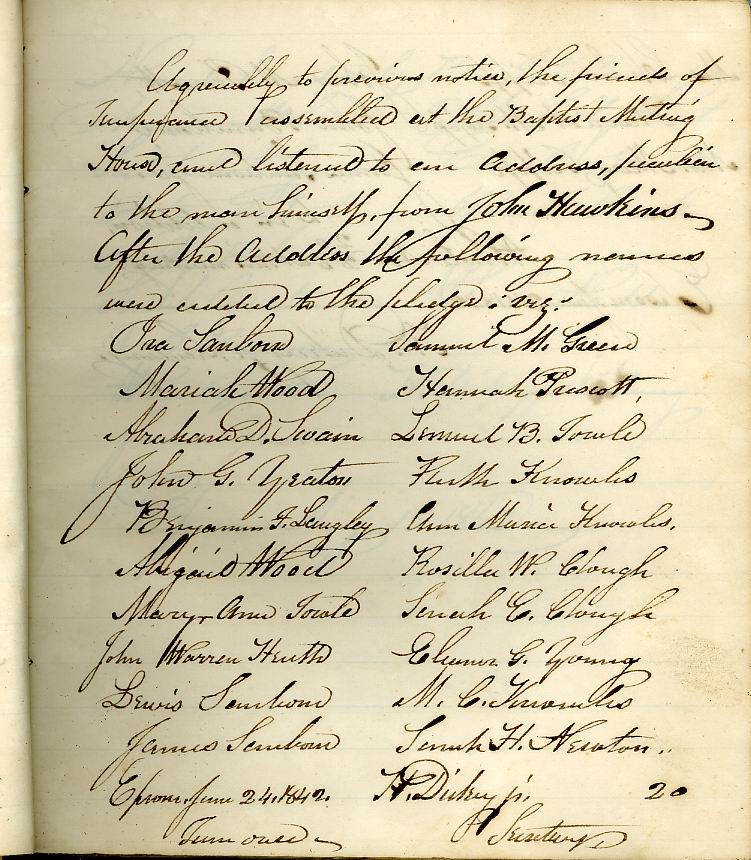 Agreeably to previous notice, the friends of
Temperance assembled at the Baptist Meeting
House, and listened to an Address, peculiar
to the man himself, from John Hawkins.
After the Address the following names
were added to the pledge: viz:
Ira Sanborn Samuel M. Green
Mariah Wood Hannah Prescott,
Abraham D. Swain Lemuel B. Towle
John G. Yeaton Ruth Knowles
Benjamin F. Langley Ann Maria Knowles.
Abigail Wood Rosilla W. Clough
Mary Ann Towle Sarah C. Clough
John Warren Heath Eleanor G. Young
Lewis Sanborn M. C. Knowles
James Sanborn Sarah H. Newton.
Epsom. June 24. 1842. H. Dickey jr. 20
Turn over Secretary